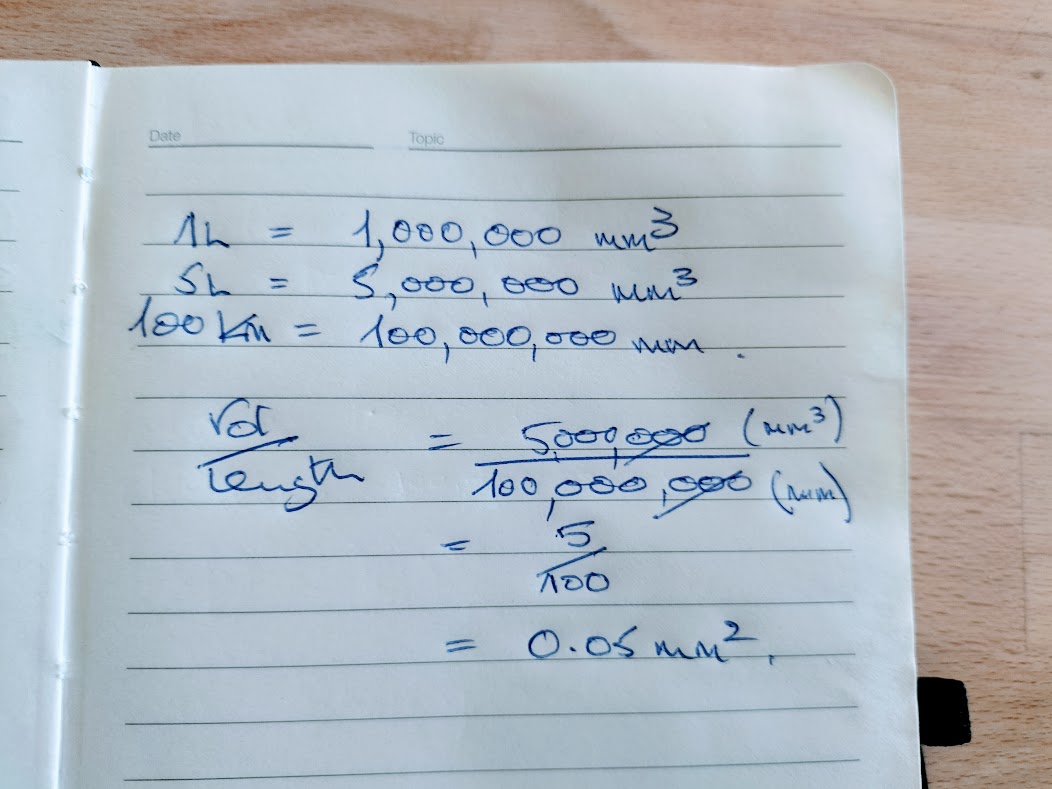 Date Topic
1L = 1,000,000 mm³
5L = 5,000,000 mm³
100 Km = 100,000,000 mm.
Vol / Length = 5,000,000 (mm³) / 100,000,000 (mm)
= 5 / 100
= 0.05 mm².